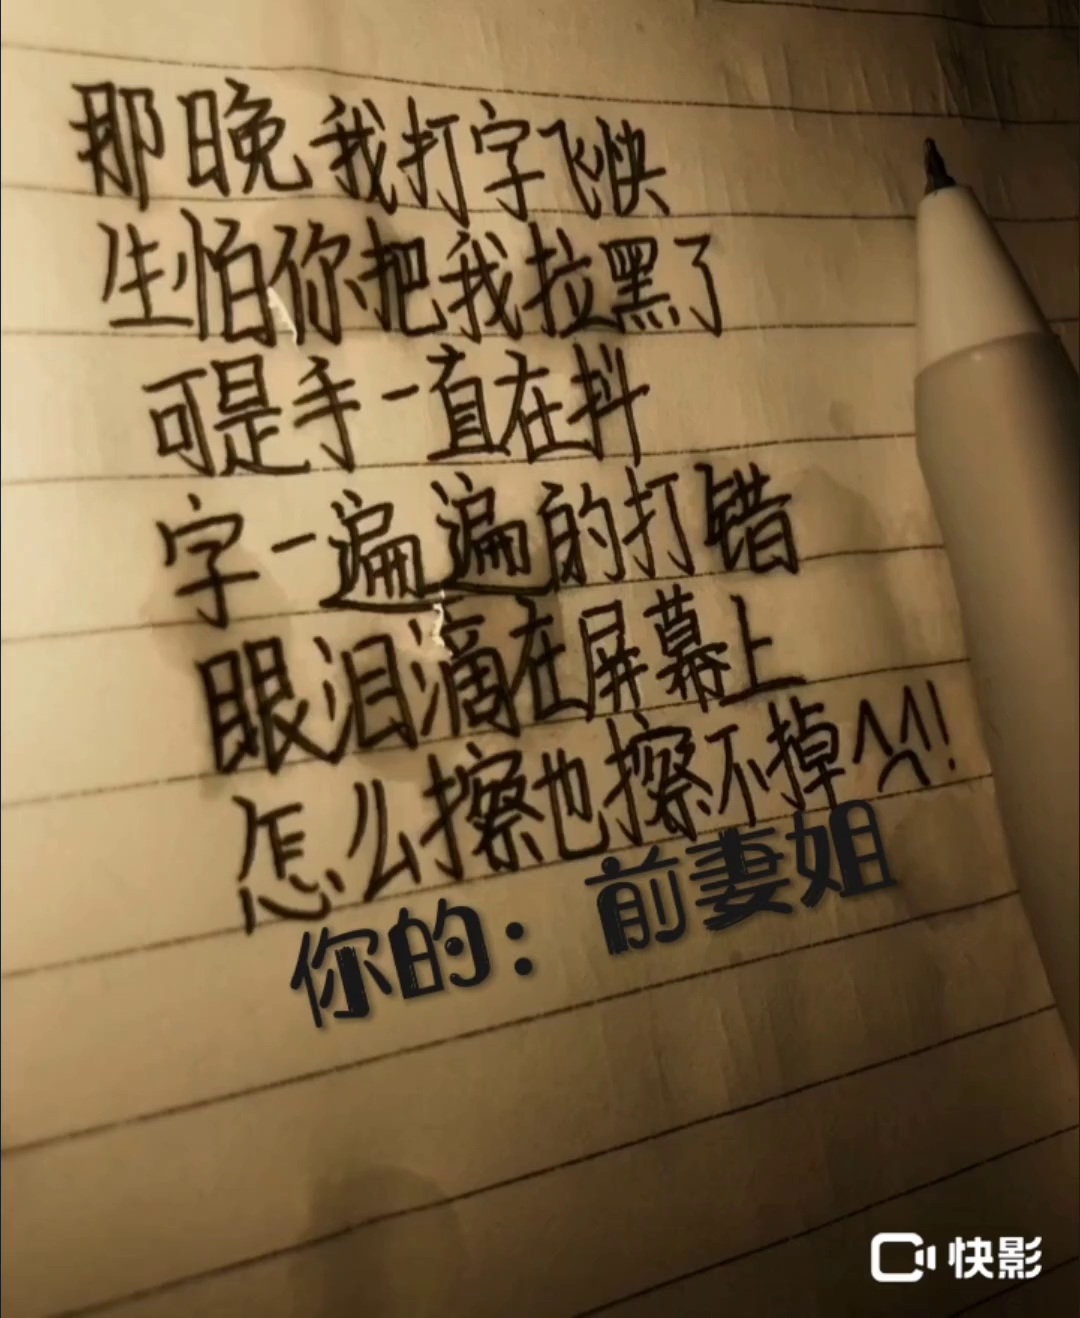 那晚我打字飞快
生怕你把我拉黑了
可是手一直在抖
字一遍遍的打错
眼泪滴在屏幕上
怎么擦也擦不掉^^!
你的：前妻姐
快影